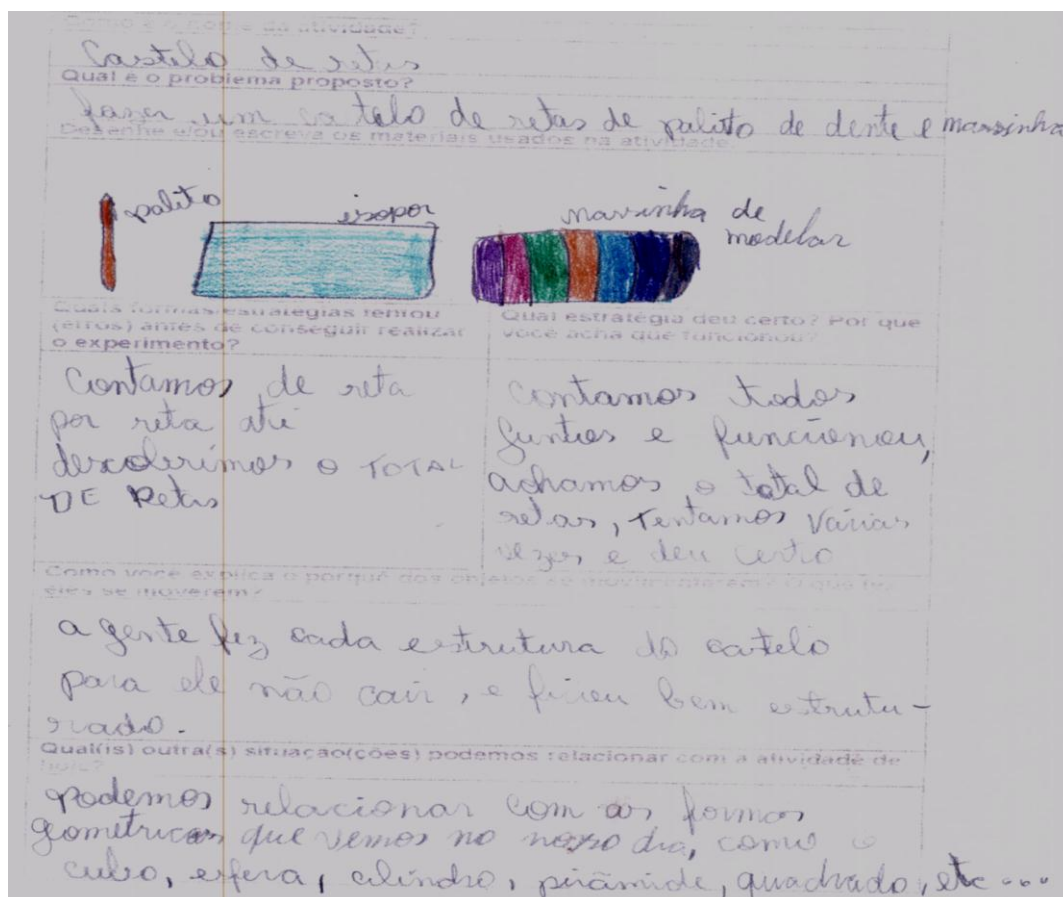 Como é o nome da atividade?
Castelo de retas
Qual é o problema proposto?
fazer um castelo de retas de palito de dente e massinha
Desenhe e/ou escreva os materiais usados na atividade.
palito
isopor
massinha de
modelar
Quais formas estratégias tentou
(erros) antes de conseguir realizar
o experimento?
Contamos de reta
por reta até
descobrirmos o TOTAL
DE Retas
Qual estratégia deu certo? Por que
você acha que funcionou?
Contamos todos
juntos e funcionou,
achamos o total de
retas, Tentamos várias
vezes e deu certo
Como você explica o porquê dos objetos se movimentarem? O que fez
eles se moverem?
a gente fez cada estrutura do castelo
para ele não cair, e ficou bem estrutu-
rado.
Qual(is) outra(s) situação(ções) podemos relacionar com a atividade de
hoje?
podemos relacionar com as formas
geometricas que vemos no nosso dia, como o
cubo, esfera, cilindro, pirâmide, quadrado, etc...